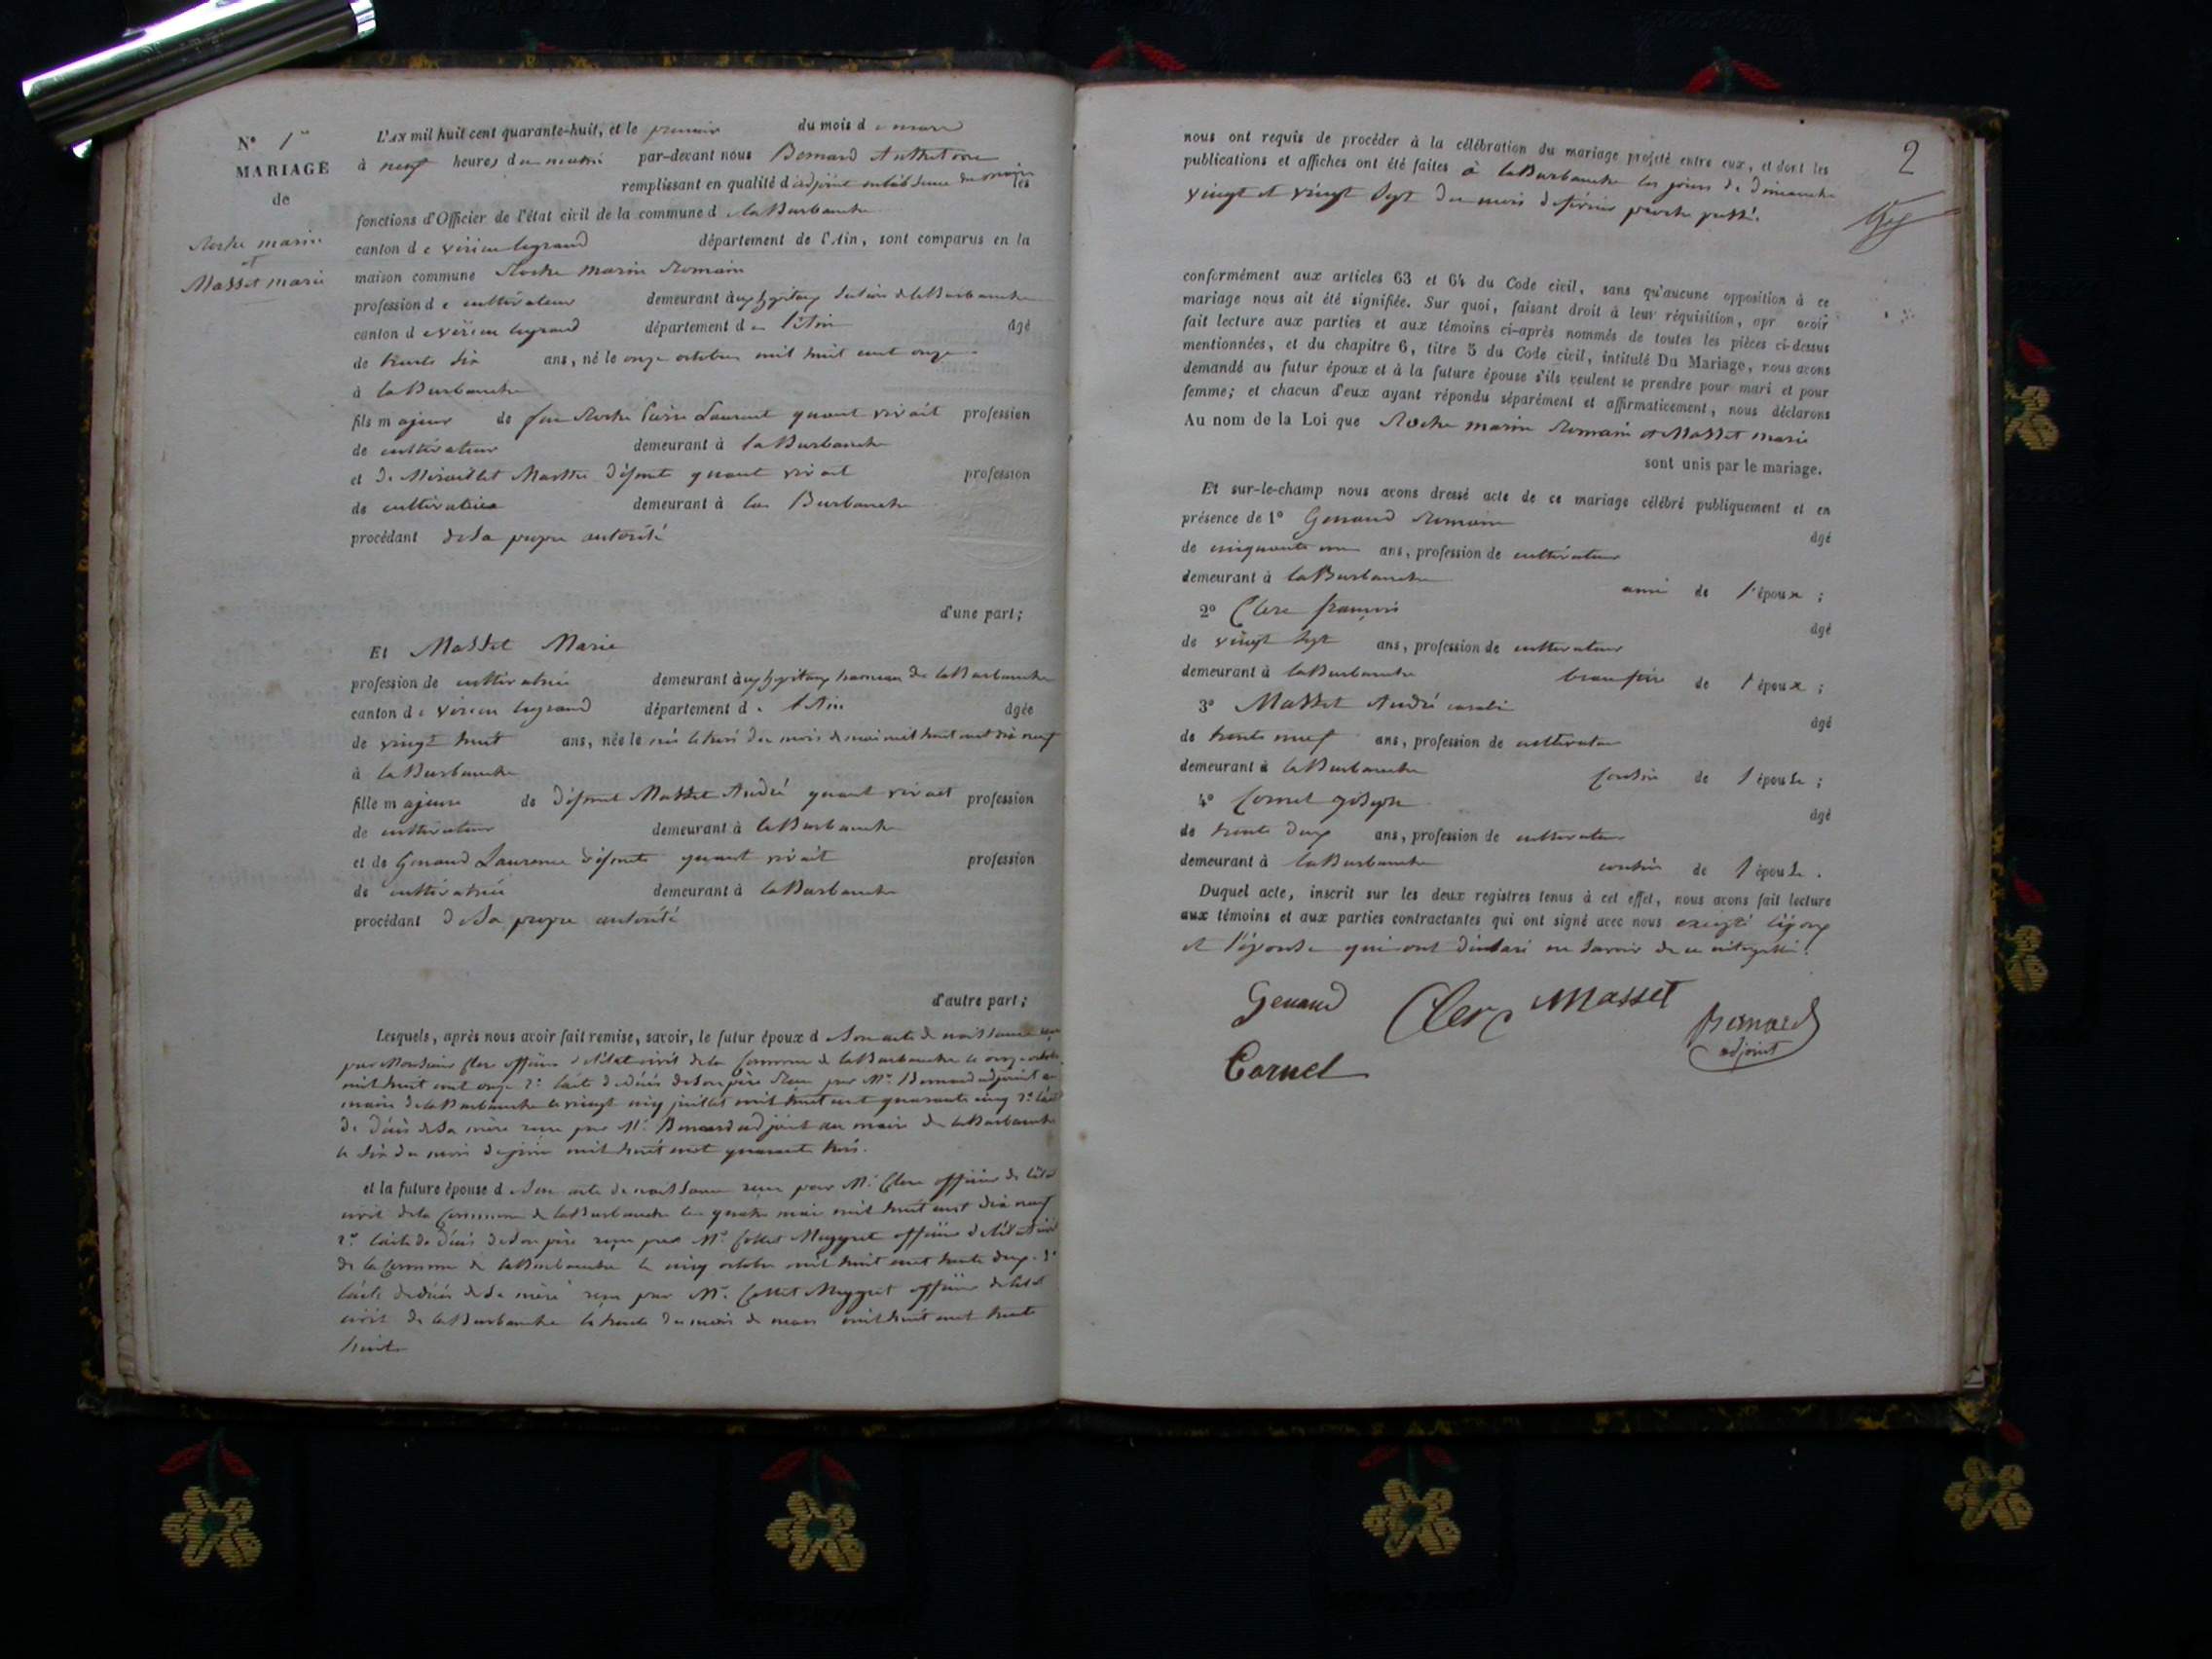 N° 1er
MARIAGE
de
Roche marin
et
Masset marie
L'AN mil huit cent quarante-huit, et le premier du mois de mars
à neuf heures du matin par-devant nous Bernard Anthelme
remplissant en qualité d'adjoint en l'absence du maire les
fonctions d'Officier de l'état civil de la commune de laBurbanche
canton de virieu legrand département de l'Ain, sont comparus en la
maison commune Roche marin Romain
profession de cultivateur demeurant section de laBurbanche
canton de virieu legrand département de l'Ain âgé
de trente six ans, né le onze octobre mil huit cent onze
à laBurbanche
fils majeur de feu Roche Pierre Laurent quant vivait profession
de cultivateur demeurant à laBurbanche
et de Marthe défunte quant vivait profession
de cultivatrice demeurant à la Burbanche
procédant de sa propre autorité
d'une part;
Et Masset Marie
profession de cultivatrice demeurant hameau de laBurbanche
canton de virieu legrand département de l'Ain âgée
de vingt huit ans, née le trois du mois de mai mil huit cent dix neuf
à laBurbanche
fille majeure de défunt Masset André quant vivait profession
de cultivateur demeurant à laBurbanche
et de Genaud Laurence défunte quant vivait profession
de cultivatrice demeurant à laBurbanche
procédant de sa propre autorité
d'autre part;
Lesquels, après nous avoir fait remise, savoir, le futur époux de son acte de naissance reçu
par Monsieur Clerc officier de l'état civil de la Commune de laBurbanche le onze octobre
mil huit cent onze 2° l'acte de décès de son père reçu par Mr Bernard adjoint au
maire de laBurbanche le vingt cinq juillet mil huit cent quarante cinq 3° l'acte
de décès de sa mère reçu par Mr Bernard adjoint au maire de laBurbanche
le dix du mois de juin mil huit cent quarante trois.
et la future épouse de son acte de naissance reçu par Mr Clerc officier de l'état
civil de la Commune de laBurbanche le quatre mai mil huit cent dix neuf
2° l'acte de décès de son père reçu par Mr Collet Meygret officier de l'état civil
de la Commune de laBurbanche le cinq octobre mil huit cent trente deux 3°
l'acte de décès de sa mère reçu par Mr Collet Meygret officier de l'état
civil de laBurbanche le trente du mois de mars mil huit cent trente
huit
2
nous ont requis de procéder à la célébration du mariage projeté entre eux, et dont les
publications et affiches ont été faites à laBurbanche les jours de dimanche
vingt et vingt sept du mois de février proche passé.
conformément aux articles 63 et 64 du Code civil, sans qu'aucune opposition à ce
mariage nous ait été signifiée. Sur quoi, faisant droit à leur réquisition, apr avoir
fait lecture aux parties et aux témoins ci-après nommés de toutes les pièces ci-dessus
mentionnées, et du chapitre 6, titre 5 du Code civil, intitulé Du Mariage, nous avons
demandé au futur époux et à la future épouse s'ils veulent se prendre pour mari et pour
femme; et chacun d'eux ayant répondu séparément et affirmativement, nous déclarons
Au nom de la Loi que Roche marin Romain et Masset marie
sont unis par le mariage.
Et sur-le-champ nous avons dressé acte de ce mariage célébré publiquement et en
présence de 1° Genaud Romain
âgé
de cinquante ans, profession de cultivateur
demeurant à laBurbanche ami de l'époux ;
2° Clerc françois
âgé
de vingt sept ans, profession de cultivateur
demeurant à laBurbanche beau frère de l'époux ;
3° Masset André
âgé
de trente neuf ans, profession de cultivateur
demeurant à laBurbanche cousin de l'épouse ;
4° Cornel joseph
âgé
de trente deux ans, profession de cultivateur
demeurant à laBurbanche cousin de l'épouse .
Duquel acte, inscrit sur les deux registres tenus à cet effet, nous avons fait lecture
aux témoins et aux parties contractantes qui ont signé avec nous excepté l'époux
et l'épouse qui ont déclaré ne savoir de ce interpellé.
Genaud Clerc Masset Bernard
adjoint
Cornel